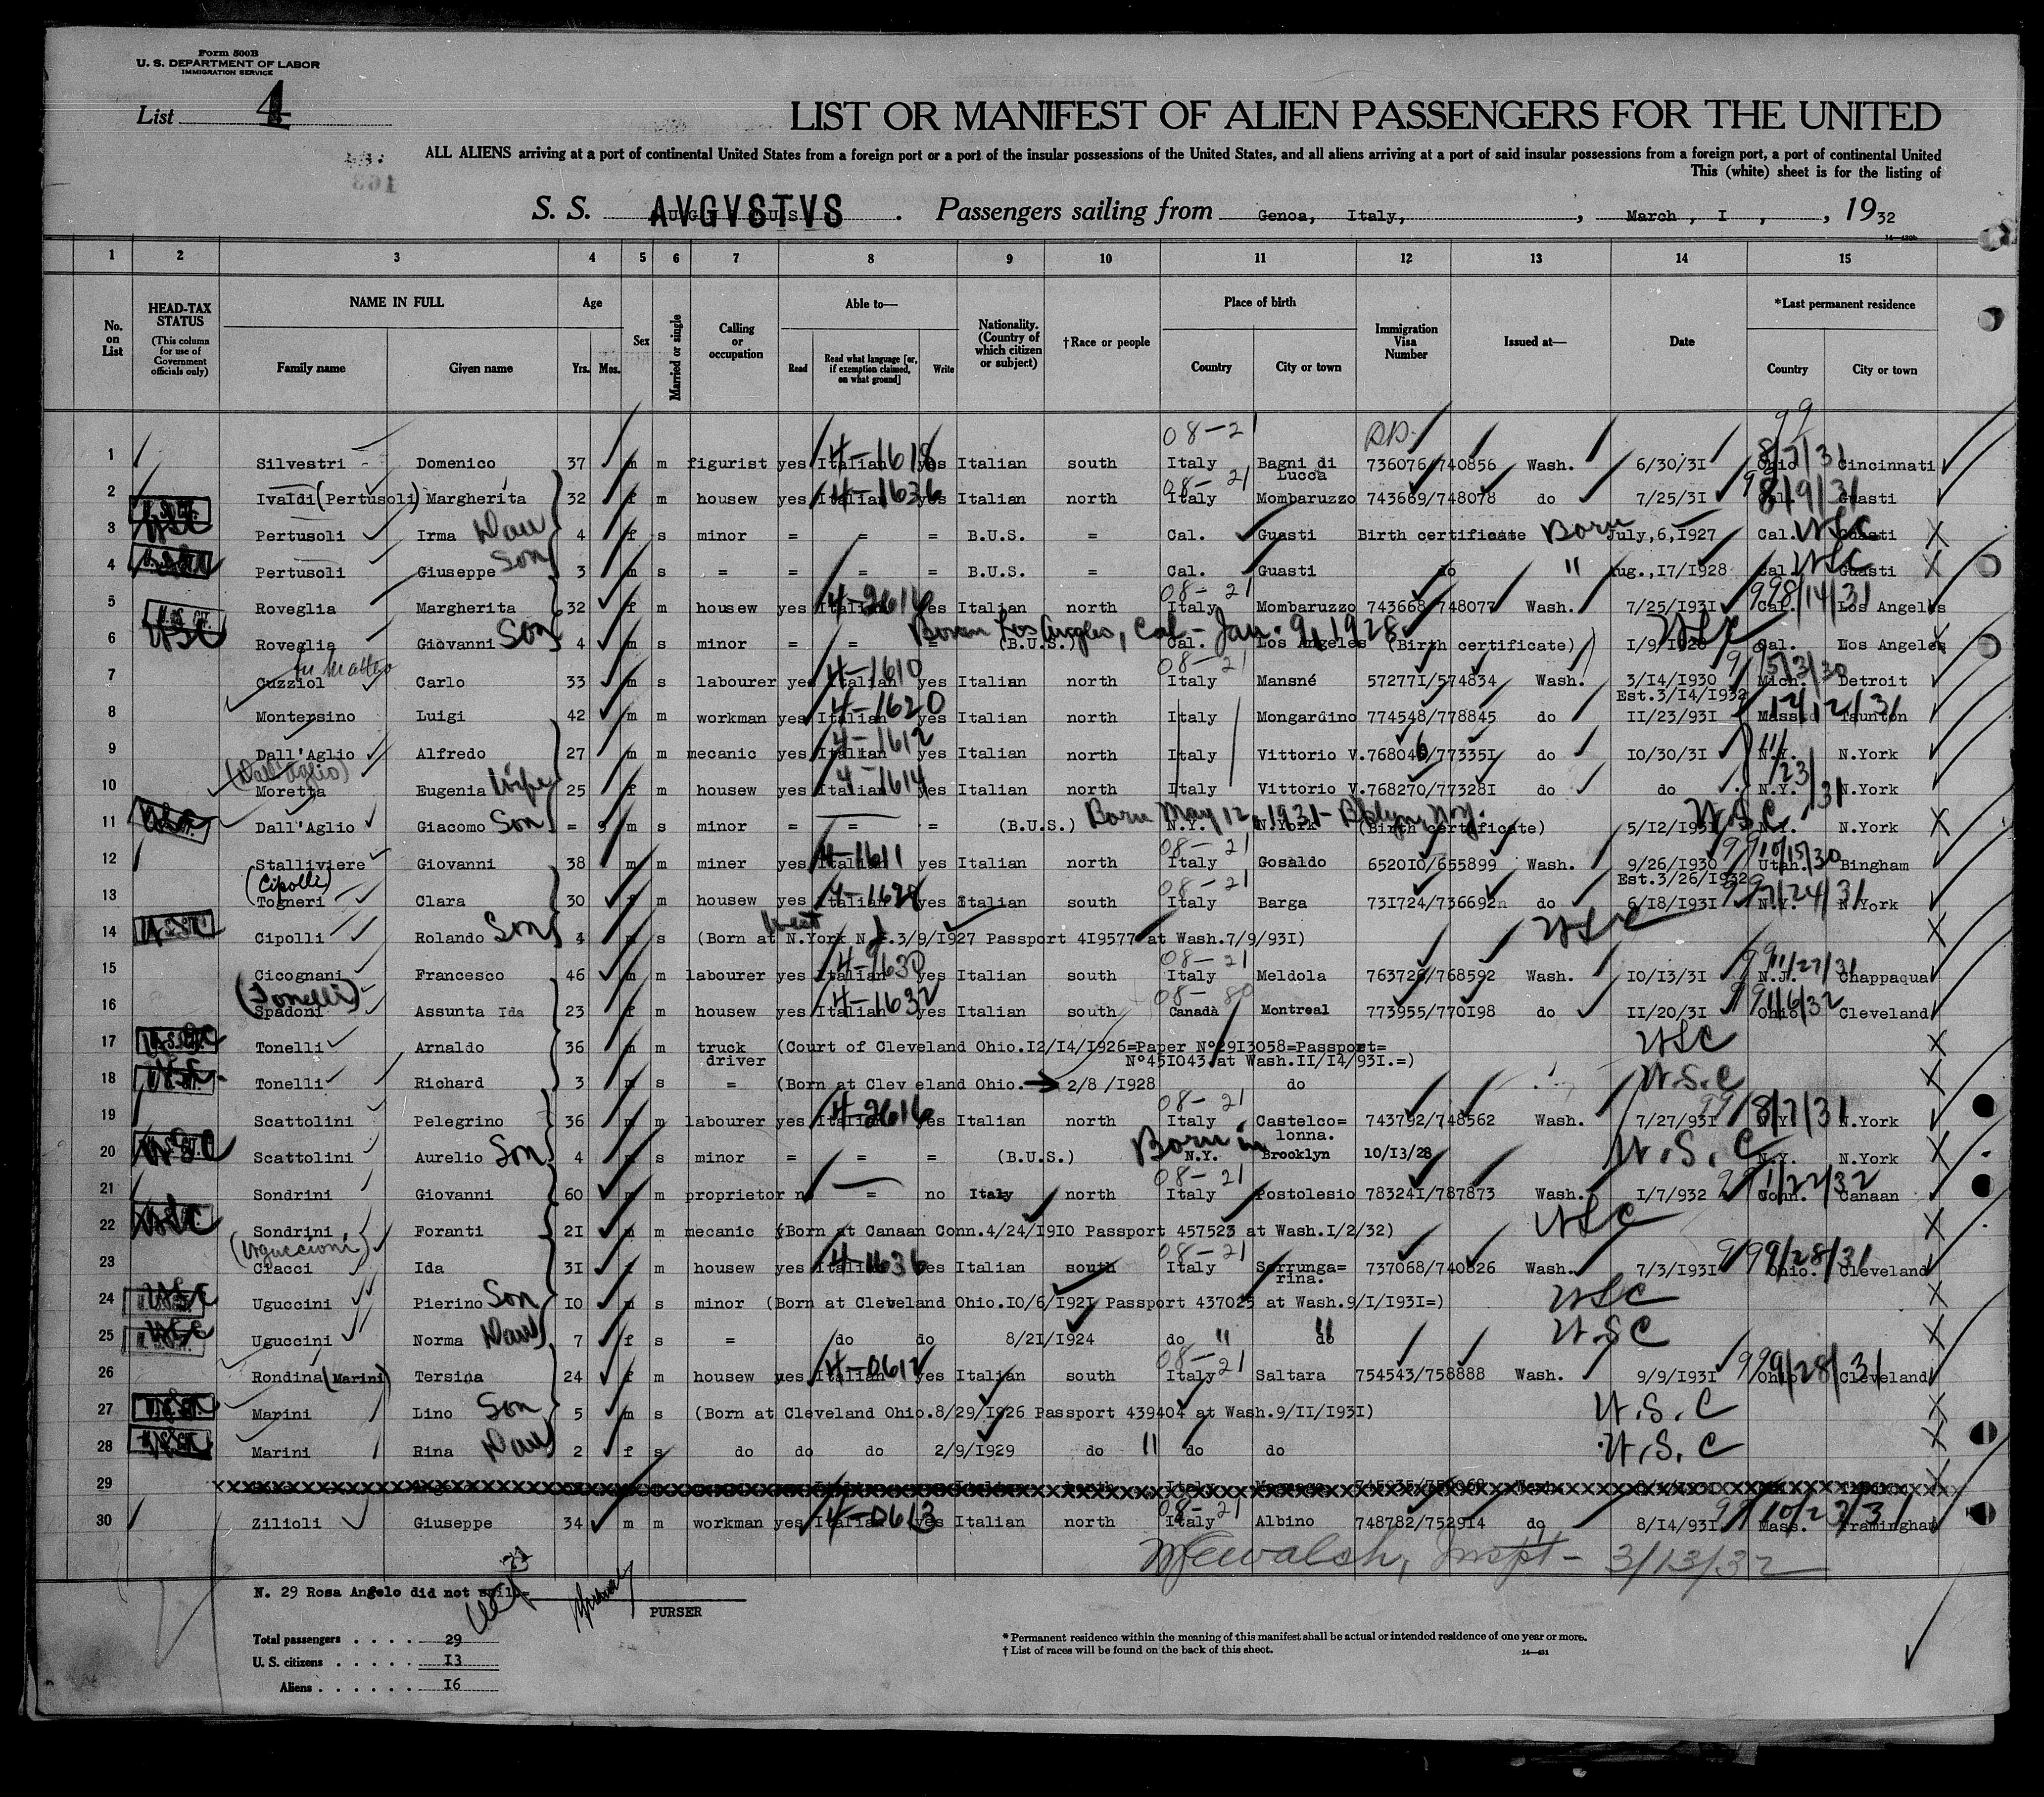 Form 500B
U. S. DEPARTMENT OF LABOR
IMMIGRATION SERVICE
List 4
LIST OR MANIFEST OF ALIEN PASSENGERS FOR THE UNITED
ALL ALIENS arriving at a port of continental United States from a foreign port or a port of the insular possessions of the United States, and all aliens arriving at a port of said insular possessions from a foreign port, a port of continental United
This (white) sheet is for the listing of
S. S. AVGVSTVS . Passengers sailing from Genoa, Italy, , March , I , , 1932
1 2 3 4 5 6 7 8 9 10 11 12 13 14 15
No. on List
HEAD-TAX STATUS
(This column for use of Government officials only)
NAME IN FULL
Family name
Given name
Age
Yrs. Mos.
Sex
Married or single
Calling or occupation
Able to—
Read
Read what language [or, if exemption claimed, on what ground]
Write
Nationality. (Country of which citizen or subject)
†Race or people
Place of birth
Country
City or town
Immigration Visa Number
Issued at—
Date
*Last permanent residence
Country
City or town
99
08-21
1 Silvestri Domenico 37 m m figurist yes Italian 4-1618 yes Italian south Italy Bagni di Lucca 736076/740856 Wash. 6/30/31 Ohio 8/7/31 Cincinnati
08-21
2 Ivaldi (Pertusoli) Margherita 32 f m housew yes Italian 4-1636 yes Italian north Italy Mombaruzzo 743669/748078 do 7/25/31 Cal. 8/9/31 Guasti
3 USC Pertusoli Irma Dau 4 f s minor = = = B.U.S. = Cal. Guasti Birth certificate Born July,6,1927 Cal. USC Guasti X
4 Pertusoli Giuseppe Son 3 m s = = = = B.U.S. = Cal. Guasti do " Aug.,17/1928 Cal. USC Guasti X
08-21
5 Roveglia Margherita 32 f m housew yes Italian 4-2616 yes Italian north Italy Mombaruzzo 743668/748077 Wash. 7/25/1931 Cal. 998/14/31 Los Angeles
Born Los Angeles, Cal - Jan. 9, 1928
6 USC Roveglia Giovanni Son 4 m s minor = = = (B.U.S.) Cal. Los Angeles (Birth certificate) 1/9/1928 USC Cal. Los Angeles
08-21
7 Cuzziol Carlo 33 m s labourer yes Italian 4-1610 yes Italian north Italy Mansné 572771/574834 Wash. 3/14/1930 Mich. 5/3/30 Detroit
Est.3/14/1932
8 Montersino Luigi 42 m m workman yes Italian 4-1620 yes Italian north Italy Mongardino 774548/778845 do 11/23/931 Mass. 12/12/31 Taunton
9 Dall'Aglio Alfredo 27 m m mecanic yes Italian 4-1612 yes Italian north Italy Vittorio V. 768046/773351 do 10/30/31 N.Y. N.York
(Dall'Aglio)
10 Moretta Eugenia Wife 25 f m housew yes Italian 4-1614 yes Italian north Italy Vittorio V. 768270/773281 do do N.Y. 11/23/31 N.York
Born May 12, 1931 - Bklyn, N.Y.
11 Dall'Aglio Giacomo Son = 9 m s minor = = = (B.U.S.) N.Y. N.York (Birth certificate) 5/12/1931 U.S.C N.Y. N.York X
08-21
12 Stalliviere Giovanni 38 m m miner yes Italian 4-1611 yes Italian north Italy Gosaldo 652010/655899 Wash. 9/26/1930 Utah. 10/15/30 Bingham
Est.3/26/1932
(Cipolli)
08-21
13 Togneri Clara 30 f m housew yes Italian yes Italian south Italy Barga 731724/736692 do 6/18/931 N.Y. 7/24/31 N.York
West
14 Cipolli Rolando Son 4 m s (Born at N.York N.J.3/9/1927 Passport 419577 at Wash.7/9/931) USC X
08-21
15 Cicognani Francesco 46 m m labourer yes Italian yes Italian south Italy Meldola 763726/768592 Wash. 10/13/31 N.J. 11/27/31 Chappaqua
(Tonelli)
08-80
16 Spadoni Assunta Ida 23 f m housew yes Italian 4-1632 yes Italian south Canadà Montreal 773955/770198 do 11/20/31 Ohio 1/6/32 Cleveland
17 Tonelli Arnaldo 36 m m truck driver (Court of Cleveland Ohio.12/14/1926=Paper N°2913058=Passport=
N°451043 at Wash.11/14/931.=) USC X
18 Tonelli Richard 3 m s = (Born at Clev eland Ohio. → 2/8 /1928 do U.S.C X
08-21
19 Scattolini Pelegrino 36 m m labourer yes Italian 4-2616 yes Italian north Italy Castelco=lonna. 743792/748562 Wash. 7/27/931 N.Y. 8/7/31 N.York
Born in
20 USC Scattolini Aurelio Son 4 m s minor = = = (B.U.S.) N.Y. Brooklyn 10/13/28 U.S.C N.Y. N.York X
08-21
21 Sondrini Giovanni 60 m m proprietor no = no Italy north Italy Postolesio 783241/787873 Wash. 1/7/932 Conn. 1/22/32 Canaan
22 USC Sondrini Foranti 21 m m mecanic (Born at Canaan Conn.4/24/1910 Passport 457523 at Wash.1/2/32) USC X
(Uguccioni)
08-21
23 Ciacci Ida 31 f m housew yes Italian 4-1636 yes Italian south Italy Serrunga=rina. 737068/740826 Wash. 7/3/1931 Ohio. 9/28/31 Cleveland
24 USC Uguccini Pierino Son 10 m s minor (Born at Cleveland Ohio.10/6/1921 Passport 437025 at Wash.9/1/1931=) USC X
25 USC Uguccini Norma Dau 7 f s = do do 8/21/1924 do " do " U.S.C X
08-21
26 Rondina (Marini) Tersina 24 f m housew yes Italian 4-0612 yes Italian south Italy Saltara 754543/758888 Wash. 9/9/1931 Ohio 9/28/31 Cleveland
27 Marini Lino Son 5 m s (Born at Cleveland Ohio.8/29/1926 Passport 439404 at Wash.9/11/1931) U.S.C X
28 Marini Rina Dau 2 f s do do do 2/9/1929 do " do do U.S.C X
29
08-21
30 Zilioli Giuseppe 34 m m workman yes Italian 4-0613 yes Italian north Italy Albino 748782/752914 do 8/14/931 Mass. 10/23/31 Framingham
Walsh, Inspt - 3/13/32
N. 29 Rosa Angelo did not sail=
PURSER
Total passengers . . . . 29
U. S. citizens . . . . . 13
Aliens . . . . . . 16
* Permanent residence within the meaning of this manifest shall be actual or intended residence of one year or more.
† List of races will be found on the back of this sheet.